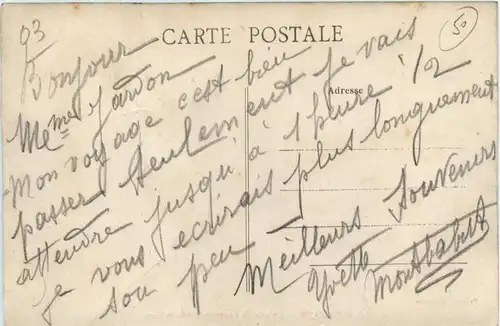 03
CARTE POSTALE
50
Adresse
Bonjour
Meme Jardon
Mon voyage c'est bien
passer seulement je vais
attendre jusqu'à 1 heure 1/2
je vous ecrirais plus longuement
sou peu
Meilleurs Souvenirs
Yvette